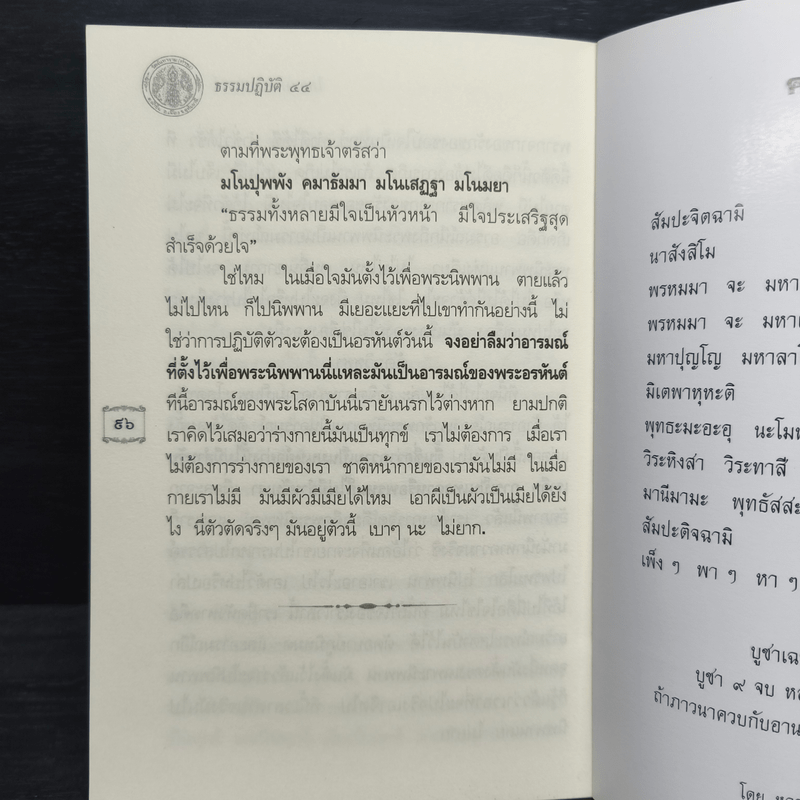 ธรรมปฏิบัติ ๔๔
ตามที่พระพุทธเจ้าตรัสว่า
มโนปุพพัง คมาธัมมา มโนเสฏฐา มโนมยา
“ธรรมทั้งหลายมีใจเป็นหัวหน้า มีใจประเสริฐสุด
สำเร็จด้วยใจ”
ใช่ไหม ในเมื่อใจมันตั้งไว้เพื่อพระนิพพาน ตายแล้ว
ไม่ไปไหน ก็ไปนิพพาน มีเยอะแยะที่ไปเขาทำกันอย่างนี้ ไม่
ใช่ว่าการปฏิบัติตัวจะต้องเป็นอรหันต์วันนี้ จงอย่าลืมว่าอารมณ์
ที่ตั้งไว้เพื่อพระนิพพานนี่แหละมันเป็นอารมณ์ของพระอรหันต์
ทีนี้อารมณ์ของพระโสดาบันนี่เรายันนรกไว้ต่างหาก ยามปกติ
เราคิดไว้เสมอว่าร่างกายนี้มันเป็นทุกข์ เราไม่ต้องการ เมื่อเรา
ไม่ต้องการร่างกายของเรา ชาติหน้ากายของเรามันไม่มี ในเมื่อ
กายเราไม่มี มันมีผัวมีเมียได้ไหม เอาผีเป็นผัวเป็นเมียได้ยัง
ไง นี่ตัวตัดจริงๆ มันอยู่ตัวนี้ เบาๆ นะ ไม่ยาก.
๕๖
สัมปะจิตฉามิ
นาสังสิโม
พรหมมา จะ มหา
พรหมมา จะ มหา
มหาปุญโญ มหาลา
มิเตพาหุหะติ
พุทธะมะอะอุ นะโม
วิระหิงสา วิระทาสี
มานีมามะ พุทธัสสะ
สัมปะติจฉามิ
เพ็ง ๆ พา ๆ หา ๆ
บูชา
บูชา ๙ จบ
ถ้าภาวนาควบกับ
โดย